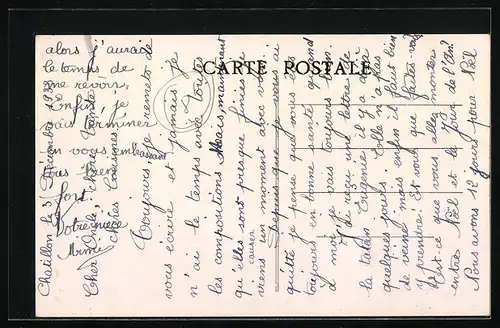 CARTE POSTALE
Chatillon le 3 Décembre 1938
Cher Oncle, chère Tante,
chères Cousines,
Toujours je remets de
vous écrire et jamais je
n'ai le temps avec toutes
les compositions. Mais maintenant
qu'elles sont presque finies je
viens un moment avec vous
causer.
Depuis que je vous ai
quitté je pense que vous êtes
toujours en bonne santé quand
à moi je vais toujours bien.
J'ai reçu une lettre de
la tatan Eugénie il y a
quelques jours. Elle n'a pas
de veine mais enfin il faut bien
y prendre! Est vous que faites-vous
Est-ce que vous allez monter
entre Noël et le Jour de l'An?
Nous avons 12 jours pour Noël
alors j'aurai
le temps de
me revoir,
Enfin, je
vais terminer
en vous embrassant
tous bien
fort.
Votre nièce
Mimi